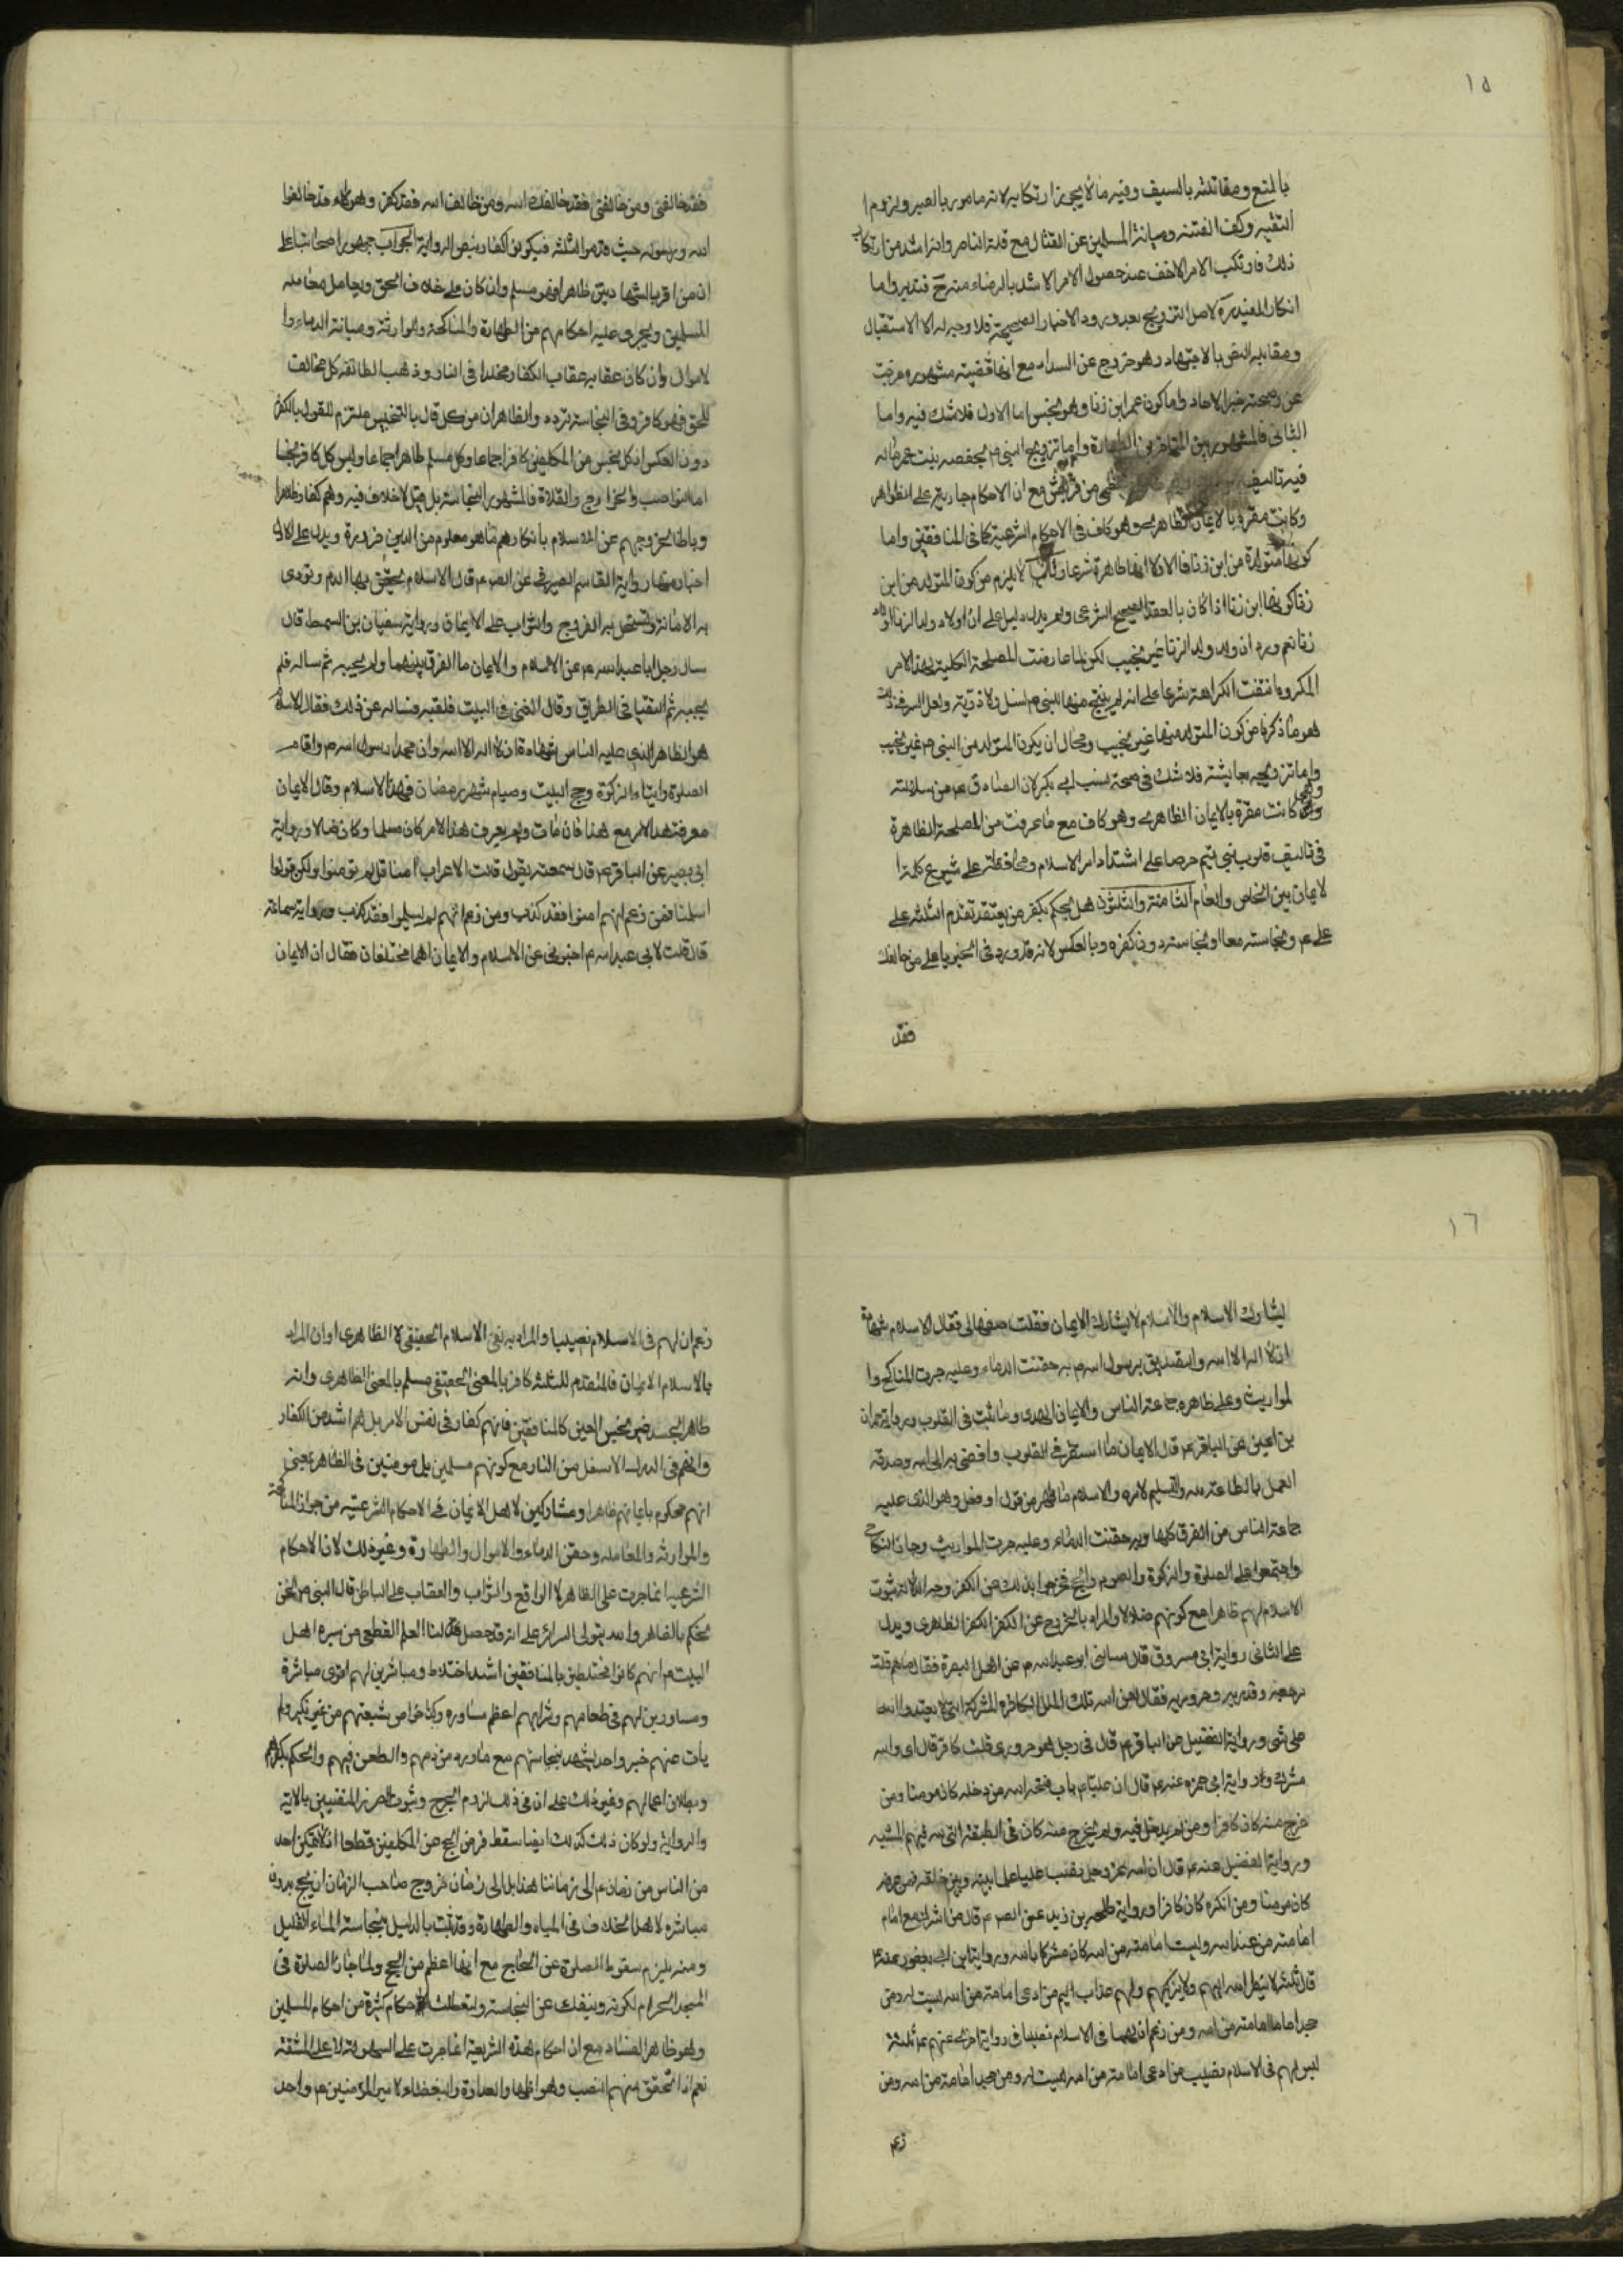 ١٥
بالمنع ومقاتلته بالسيف وفيه ما لا يجوز ارتكابه لانه مامور بالصبر ولزوم ا
التقيه وكف الفتنه وصيانة المسلمين عن القتال مع قلة الناصر وانه اشد من ارتكاب
ذلك فارتكب الامر الاخف عند حصول الامر الاشد بالرضاء منه فتدبر واما
انكار المفيد ره لاصل التزويج بعد ورود الاخبار الصحيحة فلا وجه له الا الاستقبال
ومقابله النص بالاجتهاد وهو خروج عن السداد مع انها قضيته مشهوره
عن صحته خبر الاحاد واما كون عمر ابن زنا وهو نجس اما الاول فلا شك فيه واما
الثانى فالمشهور بين المتاخرين الطهارة واما تزويج النبى ص بحفصه بنت عمر فانه
فيه تاليف من قريش مع ان الاحكام جارية على الظواهر
وكانت مقره بالايمان الظاهرى وهو كاف فى الاحكام الشرعية كما فى المنافقين واما
كونها متولدة من ابن زنا فالاولاد انها طاهرة شرعا لا يلزم من كون المتولد من ابن
زنا كونها ابن زنا اذا كان بالعقد الصحيح الشرعى ولم يدل دليل على ان اولاد ولد الزنا اولاد
زنا نعم ورد ان ولد ولد الزنا غير نجيب لكن لما عارضت المصلحة الكلية لهذا الامر
المكروه انتفت الكراهة شرعا على انه لم ينتج منها للنبى ص نسل ولا ذرية ولعل السر فى ذلك
هو ما ذكرنا من كون المتولد منها غير نجيب ومحال ان يكون المتولد من النبى ص غير نجيب
واما تزويجه بعائشة فلا شك فى صحة نسب ابى بكر لان الصادق ع من سلالته
وهى كانت مقرة بالايمان الظاهرى وهو كاف مع ما عرفت من المصلحة الظاهرة
فى تاليف قلوب بنى تيم حرصا على اشتداد امر الاسلام ومحافظة على شيوع كلمة ا
لايمان بين الخاص والعام الثامنة والثلثون هل يحكم بكفر من يعتقد تقدم الثلثه على
على ع ونجاسته معا او نجاسته دون كفره وبالعكس لانه قد ورد فى الخبر يا على من خالفك
فقد
فقد خالفنى ومن خالفنى فقد خالف الله ومن خالف الله فقد كفر وهؤلاء قد خالفوا
الله ورسوله حيث قدموا الثلثه فيكون كفار بنص الرواية الجواب جمهور اصحابنا على
ان من اقر بالشهادتين ظاهرا فهو مسلم وان كان على خلاف الحق ويعامل معامله
المسلمين ويجرى عليه احكامهم من الطهارة والمناكحة والموارثة وصيانة الدماء وا
لاموال وان كان عقابه عقاب الكفار مخلدا فى النار وذهب الطائفة كل مخالف
للحق فهو كافر وفى النجاسة تردد والظاهر ان من كل قال بالتنجيس ملتزم للقول بالكفر
دون العكس اذ كل نجس من المكلفين كافر اجماعا وكل مسلم طاهر اجماعا وليس كل كافر نجسا
اما النواصب والخوارج والغلاة فالمشهور النجاسة بل قيل لا خلاف فيه وهم كفار ظاهرا
وباطنا لخروجهم عن الاسلام بانكارهم ما هو معلوم من الدين ضرورة ويدل على الاول
اخبار منها رواية القاسم الصيرفى عن الص ع قال الاسلام يحقن بها الدم وتودى
به الامانة وتستحل به الفروج والثواب على الايمان ورواية سفيان بن السمط قال
سال رجل ابا عبد الله ع عن الاسلام والايمان ما الفرق بينهما ولم يجبه ثم ساله فلم
يجبه ثم التقيا فى الطريق وقال القنى فى البيت فلقيه فساله عن ذلك فقال الاسلام
هو الظاهر الذى عليه الناس شهادة ان لا اله الا الله وان محمدا رسول الله ص واقامه
الصلوة وايتاء الزكوة وحج البيت وصيام شهر رمضان فهذا الاسلام وقال الايمان
معرفة هذا الامر مع هذا فان مات ولم يعرف هذا الامر كان مسلما وكان ضالا ورواية
ابى بصير عن الباقر ع قال سمعته يقول قالت الاعراب امنا قل لم تومنوا ولكن قولوا
اسلمنا فمن زعم انهم امنوا فقد كذب ومن زعم انهم لم يسلموا فقد كذب ورواية سماعة
قال قلت لابى عبد الله ع اخبرنى عن الاسلام والايمان اهما مختلفان فقال ان الايمان
١٦
يشارك الاسلام والاسلام لا يشارك الايمان فقلت صفهما لى فقال الاسلام شهادة
ان لا اله الا الله والتصديق برسول الله ص به حقنت الدماء وعليه جرت المناكح وا
لمواريث وعلى ظاهره جماعة الناس والايمان الهدى وما ثبت فى القلوب ورواية حمران
بن اعين عن الباقر ع قال الايمان ما استقر فى القلوب وافضى به الى الله وصدقه
العمل بالطاعة لله والتسليم لامره والاسلام ما ظهر من قول او فعل وهو الذى عليه
جماعة الناس من الفرق كلها وبه حقنت الدماء وعليه جرت المواريث وجاز النكاح
واجتمعوا على الصلوة والزكوة والصوم والحج فخرجوا بذلك عن الكفر وجه الدلاله ثبوت
الاسلام لهم ظاهرا مع كونهم ضلالا والمراد بالخروج عن الكفر الكفر الظاهرى ويدل
على الثانى رواية ابى مسروق قال سالنى ابو عبد الله ع عن اهل البصرة فقال ما هم قلت
مرجعة وقدريه وحروريه فقال لعن الله تلك الملل الكافرة المشركة التى لا تعبد الله
على شى ورواية الفضيل عن الباقر ع قال فى رجل هو حرورى قلت كافر قال اى والله
مشرك ورواية ابى حمزه عنه ع قال ان عليا ع باب فتحه الله من دخله كان مومنا ومن
خرج منه كان كافرا ومن لم يدخل فيه ولم يخرج منه كان فى الطبقة التى لله فيهم المشيه
ورواية الفضيل عنه ع قال ان الله عز وجل نصب عليا علما بينه وبين خلقه فمن عرفه
كان مومنا ومن انكره كان كافرا ورواية طلحه بن زيد عن الص ع قال من اشرك مع امام
امامته من عند الله وليست امامته من الله كان مشركا بالله ورواية ابن ابى يعفور عنه ع
قال ثلثه لا ينظر الله اليهم ولا يزكيهم ولهم عذاب اليم من ادعى امامة من الله ليست له ومن
جحد اماما امامته من الله ومن زعم ان لهما فى الاسلام نصيبا فى رواية اخرى عنهم ع ثلثة
ليس لهم فى الاسلام نصيب من ادعى امامة من الله ليست له ومن جحد امامة من الله ومن
زعم
زعم ان لهم فى الاسلام نصيبا والمراد به نفى الاسلام الحقيقى لا الظاهرى او ان المراد
بالاسلام الايمان فالمتقدم للثلثة كافر بالمعنى الحقيقى مسلم بالمعنى الظاهرى وانه
طاهر الجسد غير نجس العين كالمنافقين فانهم كفار فى نفس الامر بل هم اشد من الكفار
وانهم فى الدرك الاسفل من النار مع كونهم مسلمين بل مومنين فى الظاهر بمعنى
انهم محكوم بايمانهم ظاهرا ومشاركين لاهل الايمان فى الاحكام الشرعيه من جواز المناكحة
والموارثه والمعامله وحقن الدماء والاموال والطهارة وغير ذلك لان الاحكام
الشرعيه انما جرت على الظاهر لا الواقع والثواب والعقاب على الباطن قال النبى ص نحن
نحكم بالظاهر والله يتولى السرائر على انه قد حصل لنا العلم القطعى من سيره اهل
البيت ع انهم كانوا مختلطين بالمنافقين اشد اختلاط ومباشرين لهم اقوى مباشرة
ومساورين لهم فى طعامهم وشرابهم اعظم مساوره وكذا خواص شيعتهم من غير نكير ولم
يات عنهم خبر واحد يشهد بنجاستهم مع ما ورد من ذمهم والطعن فيهم والحكم بكفرهم
وبطلان اعمالهم وغير ذلك على ان فى ذلك لزوم الحرج وثبوت الضرر المنفيين بالايه
والروايه ولو كان ذلك كذلك ايضا سقط فرض الحج عن المكلفين قطعا اذ لا يمكن احد
من الناس من زمانه ع الى زماننا هذا بل الى زمان خروج صاحب الزمان ان يحج بدون
مباشره لاهل الخلاف فى المياه والطهارة وقد ثبت بالدليل نجاسة الماء القليل
ومنه يلزم سقوط الصلوة عن الحاج مع انها اعظم من الحج ولما جاز الصلوة فى
المسجد الحرام لكونه وينفك عن النجاسة ولتعطلت احكام كثيرة من احكام المسلمين
وهو ظاهر الفساد مع ان احكام هذه الشريعة انما جرت على السهولة لا على المشقة
نعم اذا تحقق منهم النصب وهو اظهار العداوة والبغضاء لامير المؤمنين ع واحد